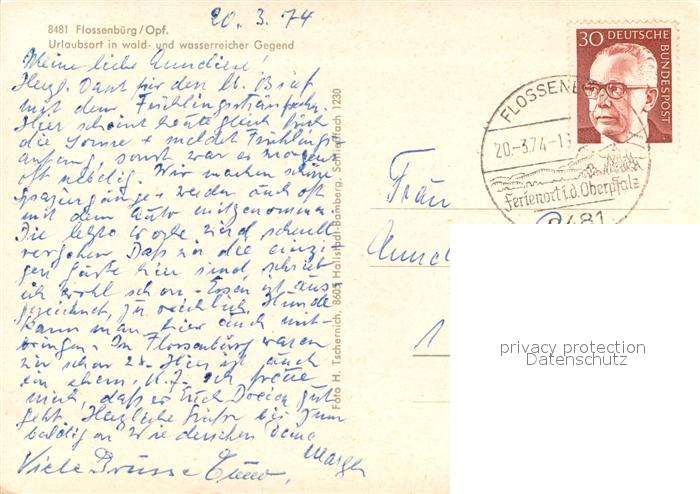 20. 3. 74
8481 Flossenbürg/Opf.
Urlaubsort in wald- und wasserreicher Gegend
Meine liebe
Herzl. Dank für den lb. Brief
mit dem Frühlingssträußchen.
Hier scheint heute gleich früh
die Sonne + meldet Frühlings-
anfang, sonst war es morgens
oft neblig. Wir machen schöne
Spaziergänge + werden auch oft
mit dem Auto mitgenommen
Die letzte Woche wird schnell
vergehen. Daß wir die einzi-
gen Gäste hier sind, schrieb
ich wohl schon - Essen ist aus-
gezeichnet, zu reichlich. Hunde
kann man hier auch mit-
bringen. In Flossenbürg waren
wir schon 2x. Hier ist auch
ein ehem. K.Z. Ich freue
mich, daß es Euch Dreien gut
geht. Herzliche Grüße bis zum
Wiedersehen Deine
Viele Grüsse
Foto H. Tschernich, 8605 Hallstadt-Bamberg, Schließfach 1230
30 DEUTSCHE
BUNDESPOST
FLOSSENB
20.-3.74-1
Ferienort i.d. Oberpfalz
8481
Frau
1
privacy protection
Datenschutz